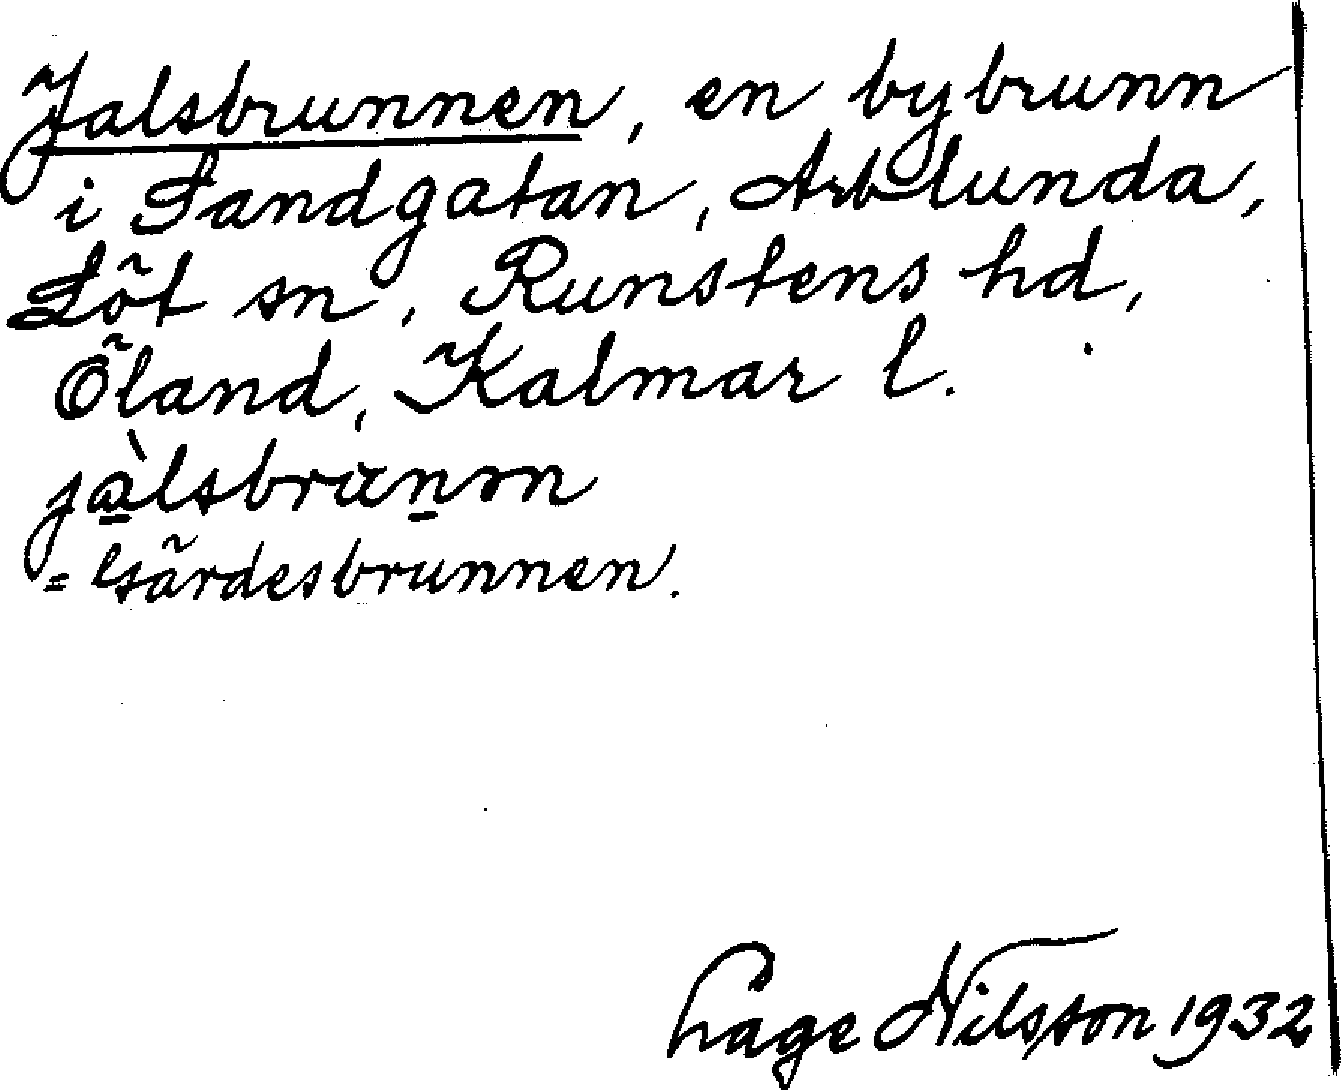 Jalsbrunnen, en bybrunn
i Sandgatan, Arbelunda,
Löt sn, Runstens hd,
Öland, Kalmar l.
jàlsbrunən
= Gärdesbrunnen.
Lage Nilsson 1932